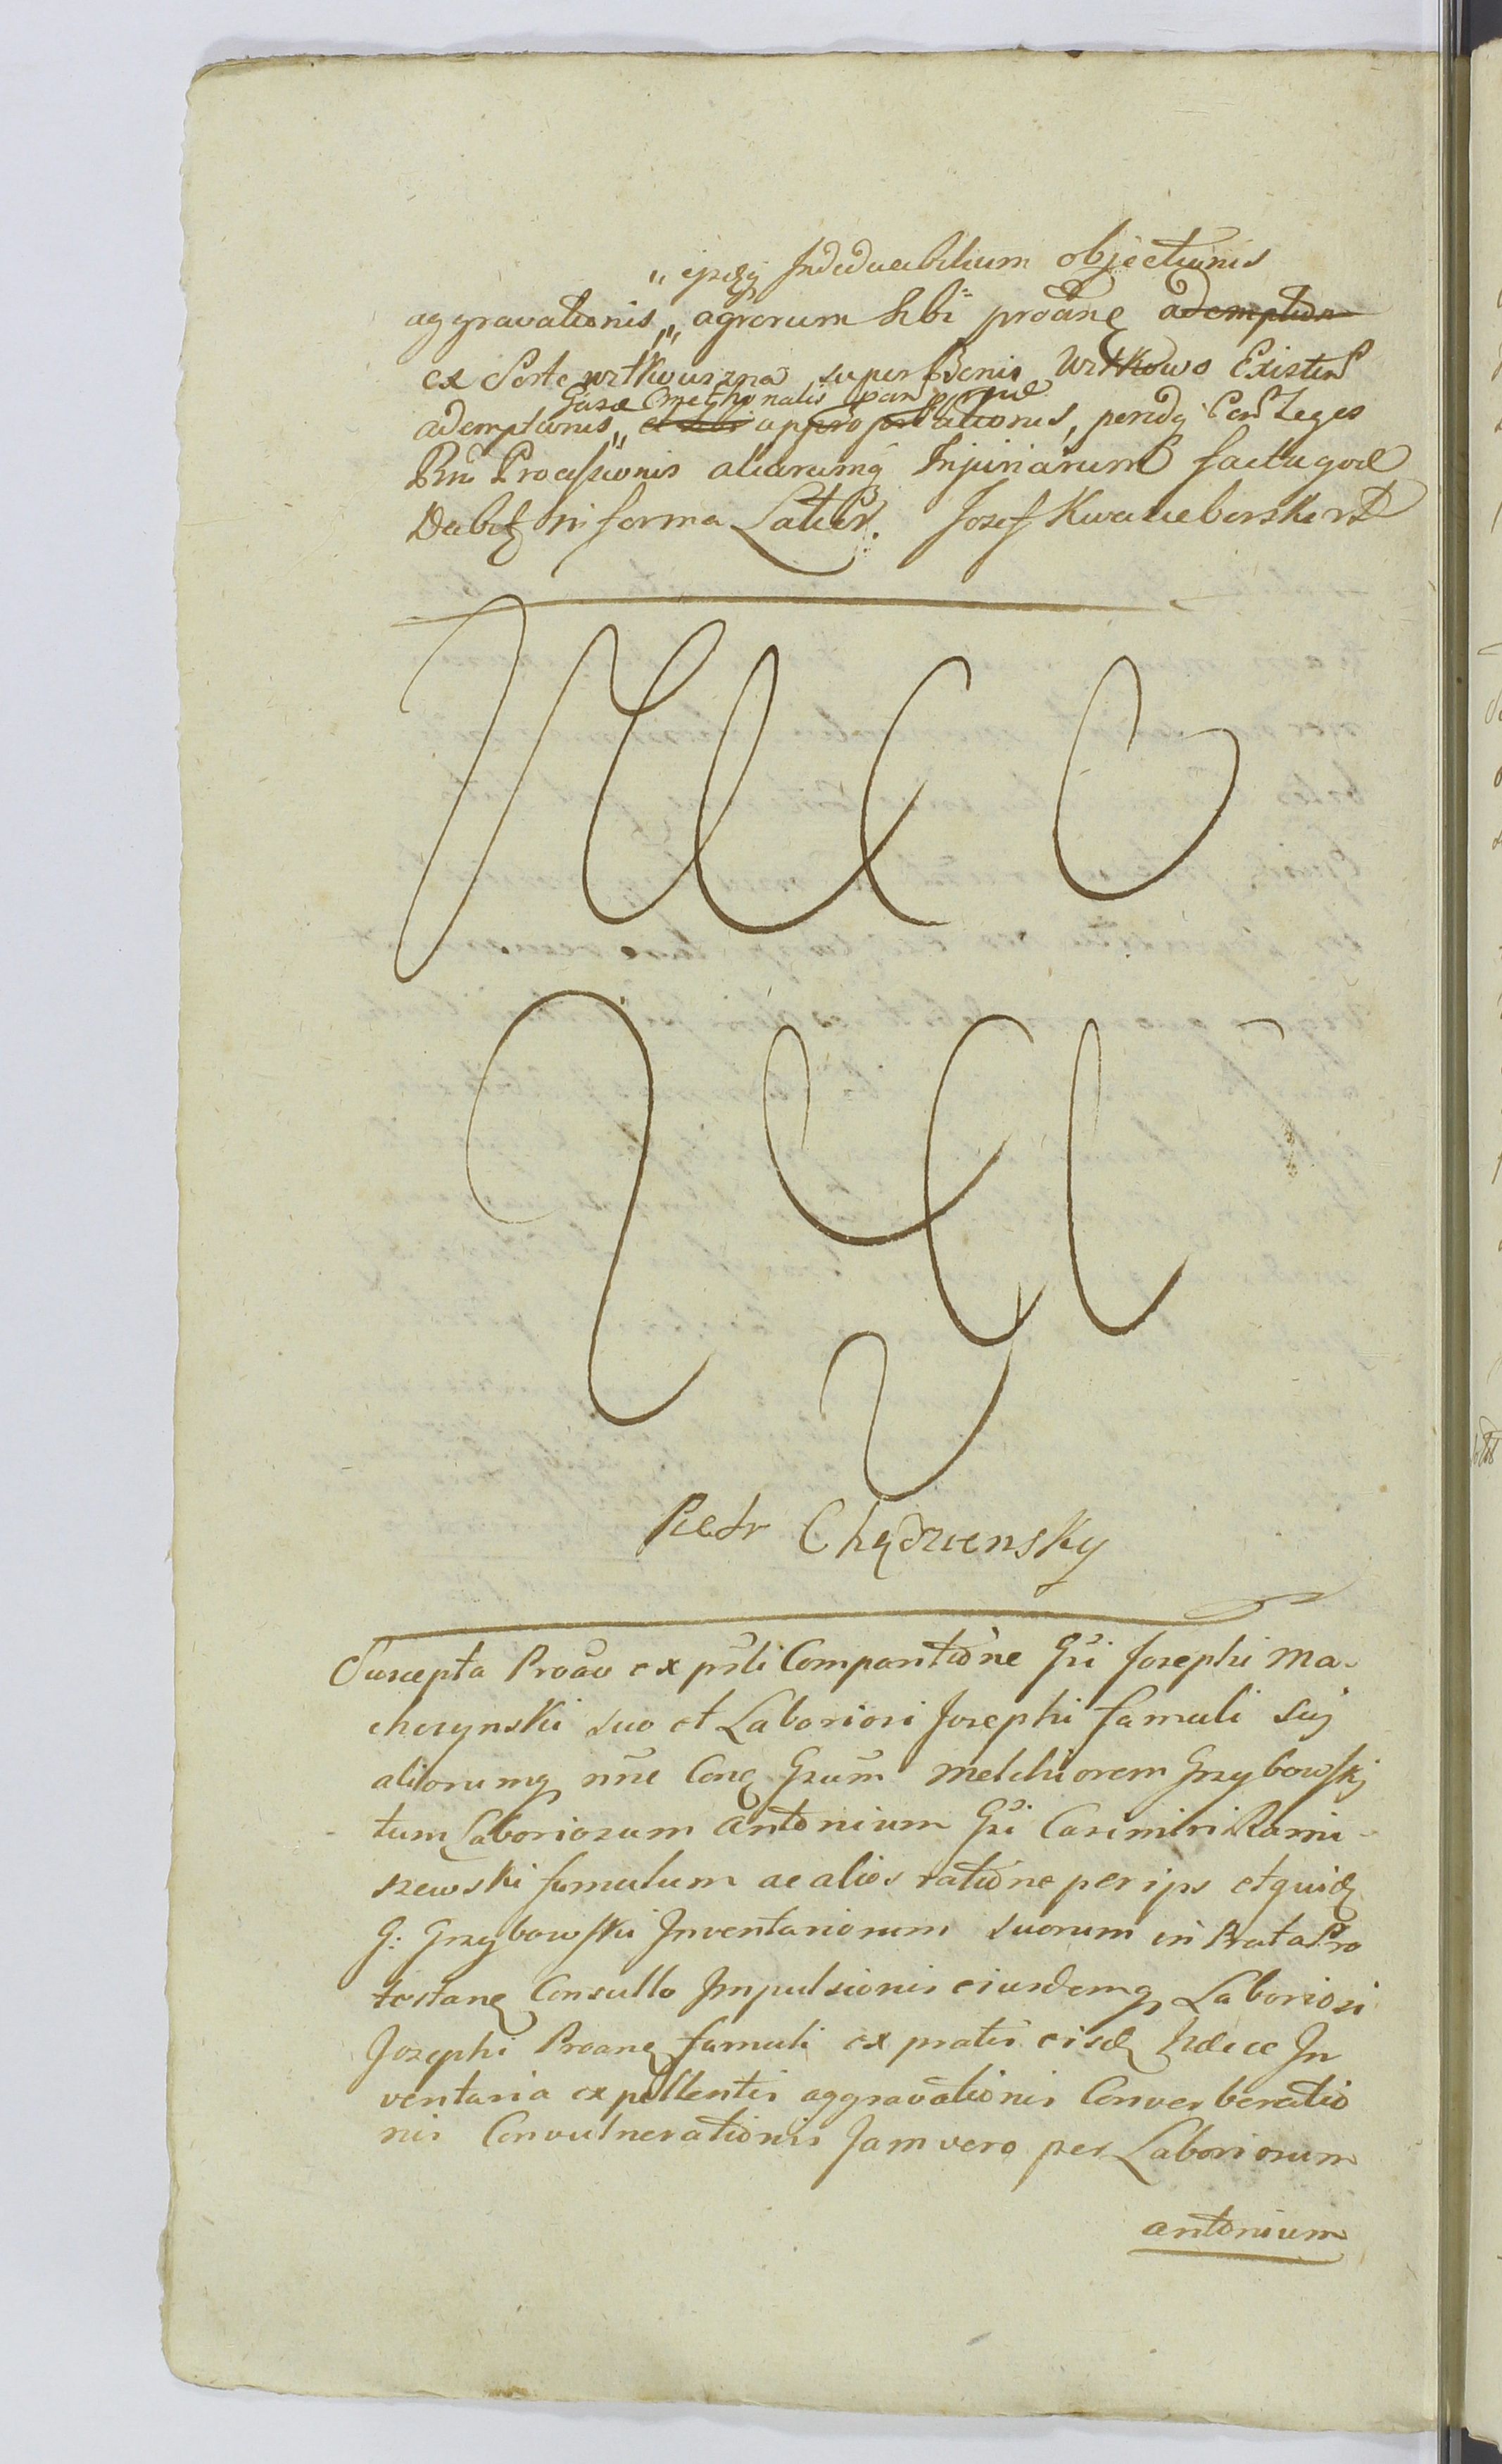 " ejusdq Indeduabilium objectionis
aggravationis " agrorum sibi proanē ademption
ex Sorte wrtkowizna super Bonis Wrtkowo Existen
Casae Cmethonalis
ademptionis " et sibi appropriationis, periđq Con Leges
Rni Processionis aliarumq Injuriarum factaqɜ
Debitɜ in forma Latiori. Jozef Kwaueborski
Pietr Chądzensky
Suscepta Proāo ex pnti Comparitione Gsi Josephi Ma-
chczynski suo et Laboriosi Josephi famuli sui
aliorumq nnē Conɜ Gsum Melchiorem Grzybowskj
tum Laboriosum antonium Gsi Casimiri Rami-
szewski famulum ac alios ratione per ips et quidɜ
G: Grzybowski Inventariorum suorum in Prata Pro
testanɜ Consulto Impulsionis eiusdemq Laboriosi
Josephi Proanɜ famuli ex pratis eisdɜ haecce In
ventaria expellentis aggravationis Converberatio
nis Convulnerationis Jam vero per Laboriosum
antonium